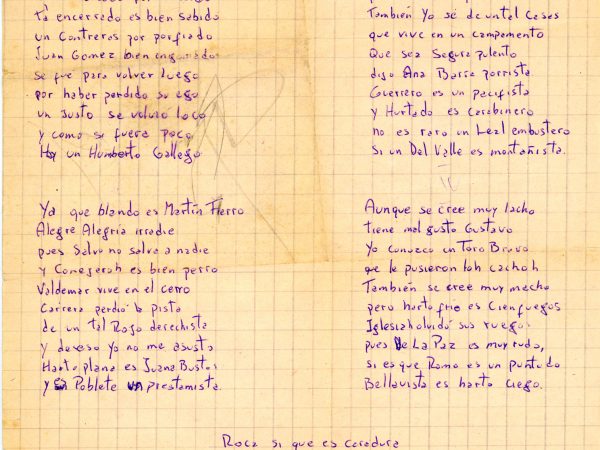 tá encerrado es bien sabido
un Contreras por porfiado
Juan Gomez bien engominado
se fue para volver luego
por haber perdido su ego
un Justo se volvió loco
y como si fuera poco
Hay un Humberto Gallego
Ya que blando es Martín Fierro
Alegre Alegría irradie
pues Salvo no salva a nadie
y Conejeroh es bien perro
Valdemar vive en el cerro
Carrera perdió la pista
de un tal Rojo derechista
y de eso yo no me asusto
Harto plana es Juana Bustos
y Poblete un prestamista.
También Yo sé de un tal Cases
que vive en un campamento
Que sea Segura pulento
dijo Ana Barra porrista
Guerrero es un pacifista
y Hurtado es carabinero
no es raro un Leal embustero
Si un Del Valle es montañista.
Aunque se cree muy lacho
tiene mal gusto Gustavo
Yo conozco un Toro Bravo
que le pusieron loh cachoh
También se cree muy macho
pero harto frio es Cienfuegos
Iglesiah olvidó sus ruegos
pues De La Paz es muy ruda,
si es que Romo es un puntudo
Bellavista es harto ciego.
Roca si que es caradura